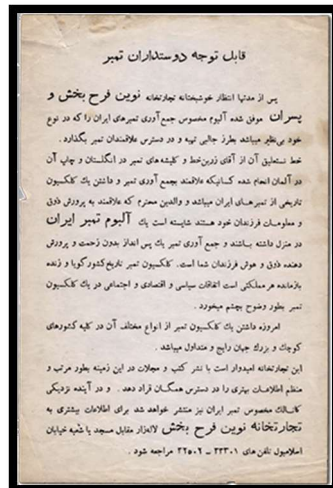 قابل توجه دوستداران تمبر
پس از مدتها انتظار خوشبختانه تجارتخانه نوین فرح بخش و
پسران موفق شده آلبوم مخصوص جمع آوری تمبرهای ایران را که در نوع
خود بی‌نظیر میباشد بطرز جالبی تهیه و در دسترس علاقمندان تمبر بگذارد .
خط نستعلیق آن از آقای زرین‌خط و کلیشه‌های تمبر در انگلستان و چاپ آن
در آلمان انجام شده کسانیکه علاقمند بجمع آوری تمبر و داشتن یك کلکسیون
تاریخی از تمبرهای ایران میباشد و والدین محترم که علاقمند به پرورش ذوق
و معلومات فرزندان خود هستند شایسته است یك آلبوم تمبر ایران
در منزل داشته باشند و جمع آوری تمبر یك پس انداز بدون زحمت و پرورش
دهنده ذوق و هوش فرزندان شما است. کلکسیون تمبر تاریخ کشور گویا و زنده
بازمانده هر مملکتی است اتفاقات سیاسی و اقتصادی و اجتماعی در یك کلکسیون
تمبر بطور وضوح بچشم میخورد .
امروزه داشتن یك کلکسیون تمبر از انواع مختلف آن در کلیه کشورهای
کوچك و بزرك جهان رایج و متداول میباشد .
این تجارتخانه امیدوار است با نشر کتب و مجلات در این زمینه بطور مرتب و
منظم اطلاعات بهتری را در دسترس همگان قراد دهد . و در آینده نزدیکی
کاتالك مخصوص تمبر ایران نیز منتشر خواهد شد برای اطلاعات بیشتری به
تجارتخانه نوین فرح بخش لاله‌زار مقابل مسجد یا شعبه خیابان
اسلامبول تلفن های ۳۳۳۰۱ – ۳۲۵۰۲ مراجعه شود .